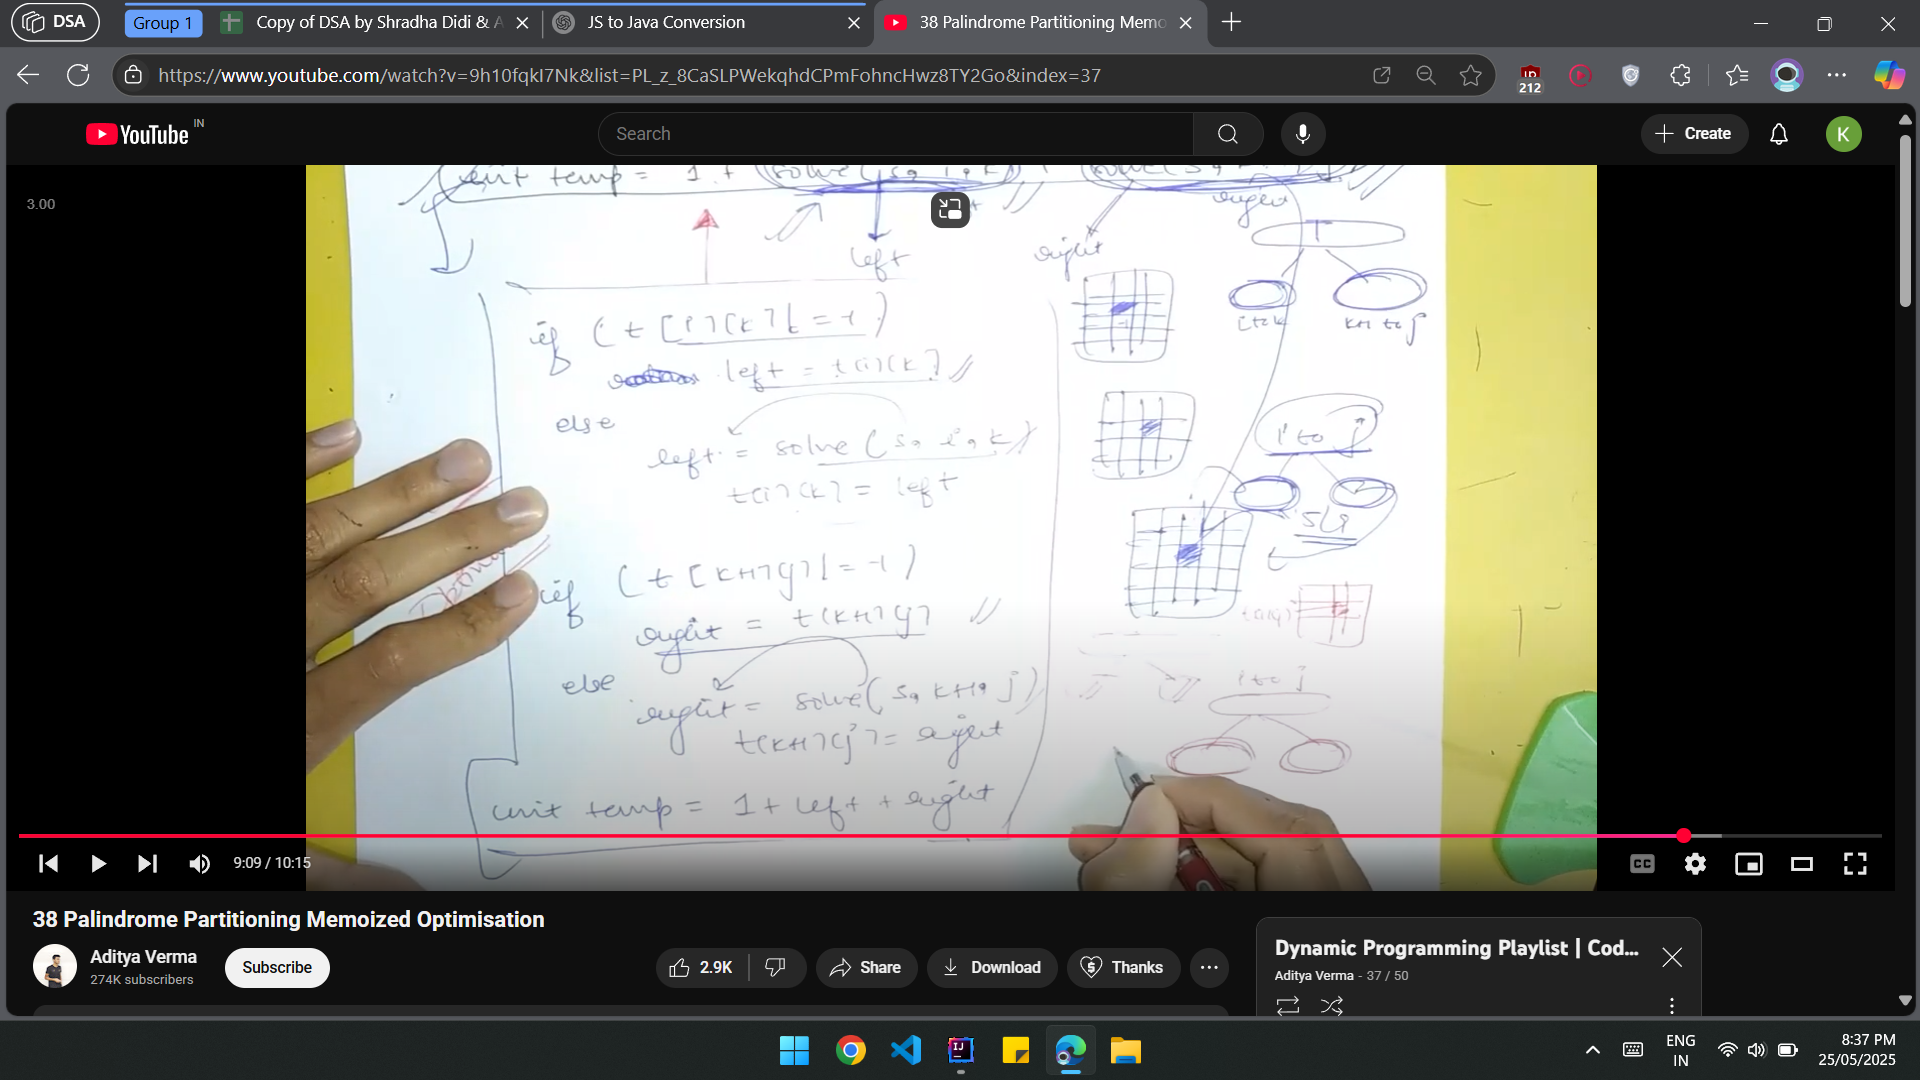 DSA
Group 1
Copy of DSA by Shradha Didi & A
JS to Java Conversion
38 Palindrome Partitioning Memo
https://www.youtube.com/watch?v=9h10fqkI7Nk&list=PL_z_8CaSLPWekqhdCPmFohncHwz8TY2Go&index=37
212
YouTube IN
Search
Create
K
3.00
int temp = 1 + (solve(s, i, k)
left
right
if (t[i][k] != -1)
left = t[i][k]
else
left = solve(s, i, k)
t[i][k] = left
if (t[k+1][j] != -1)
right = t[k+1][j]
else
right = solve(s, k+1, j)
t[k+1][j] = right
int temp = 1 + left + right
T
i to k
k+1 to j
-1
i to j
i to j
9:09 / 10:15
CC
38 Palindrome Partitioning Memoized Optimisation
Aditya Verma
274K subscribers
Subscribe
2.9K
Share
Download
Thanks
Dynamic Programming Playlist | Cod...
Aditya Verma - 37 / 50
ENG
IN
8:37 PM
25/05/2025